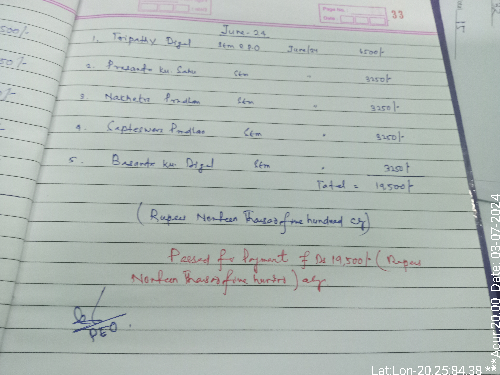 33
June-24
1. Tripathy Digal Stm S.P.O June/24 6500/-
2. Prasanta ku Sahu Stm " 3250/-
3. Nachetra Pradhan Stm " 3250/-
4. Sapteswar Pradhan Stm " 3250/-
5. Basanta ku Digal Stm " 3250/-
Total = 19,500/-
(Rupees Nonteen Thousand five hundred only)
Passed for Payment of Rs 19,500/- (Rupees
Nonteen Thousand five hundred) only
PEO
Lat Lon-20.25:84.38 ***Acur.20.00 Date. 03-07-2024